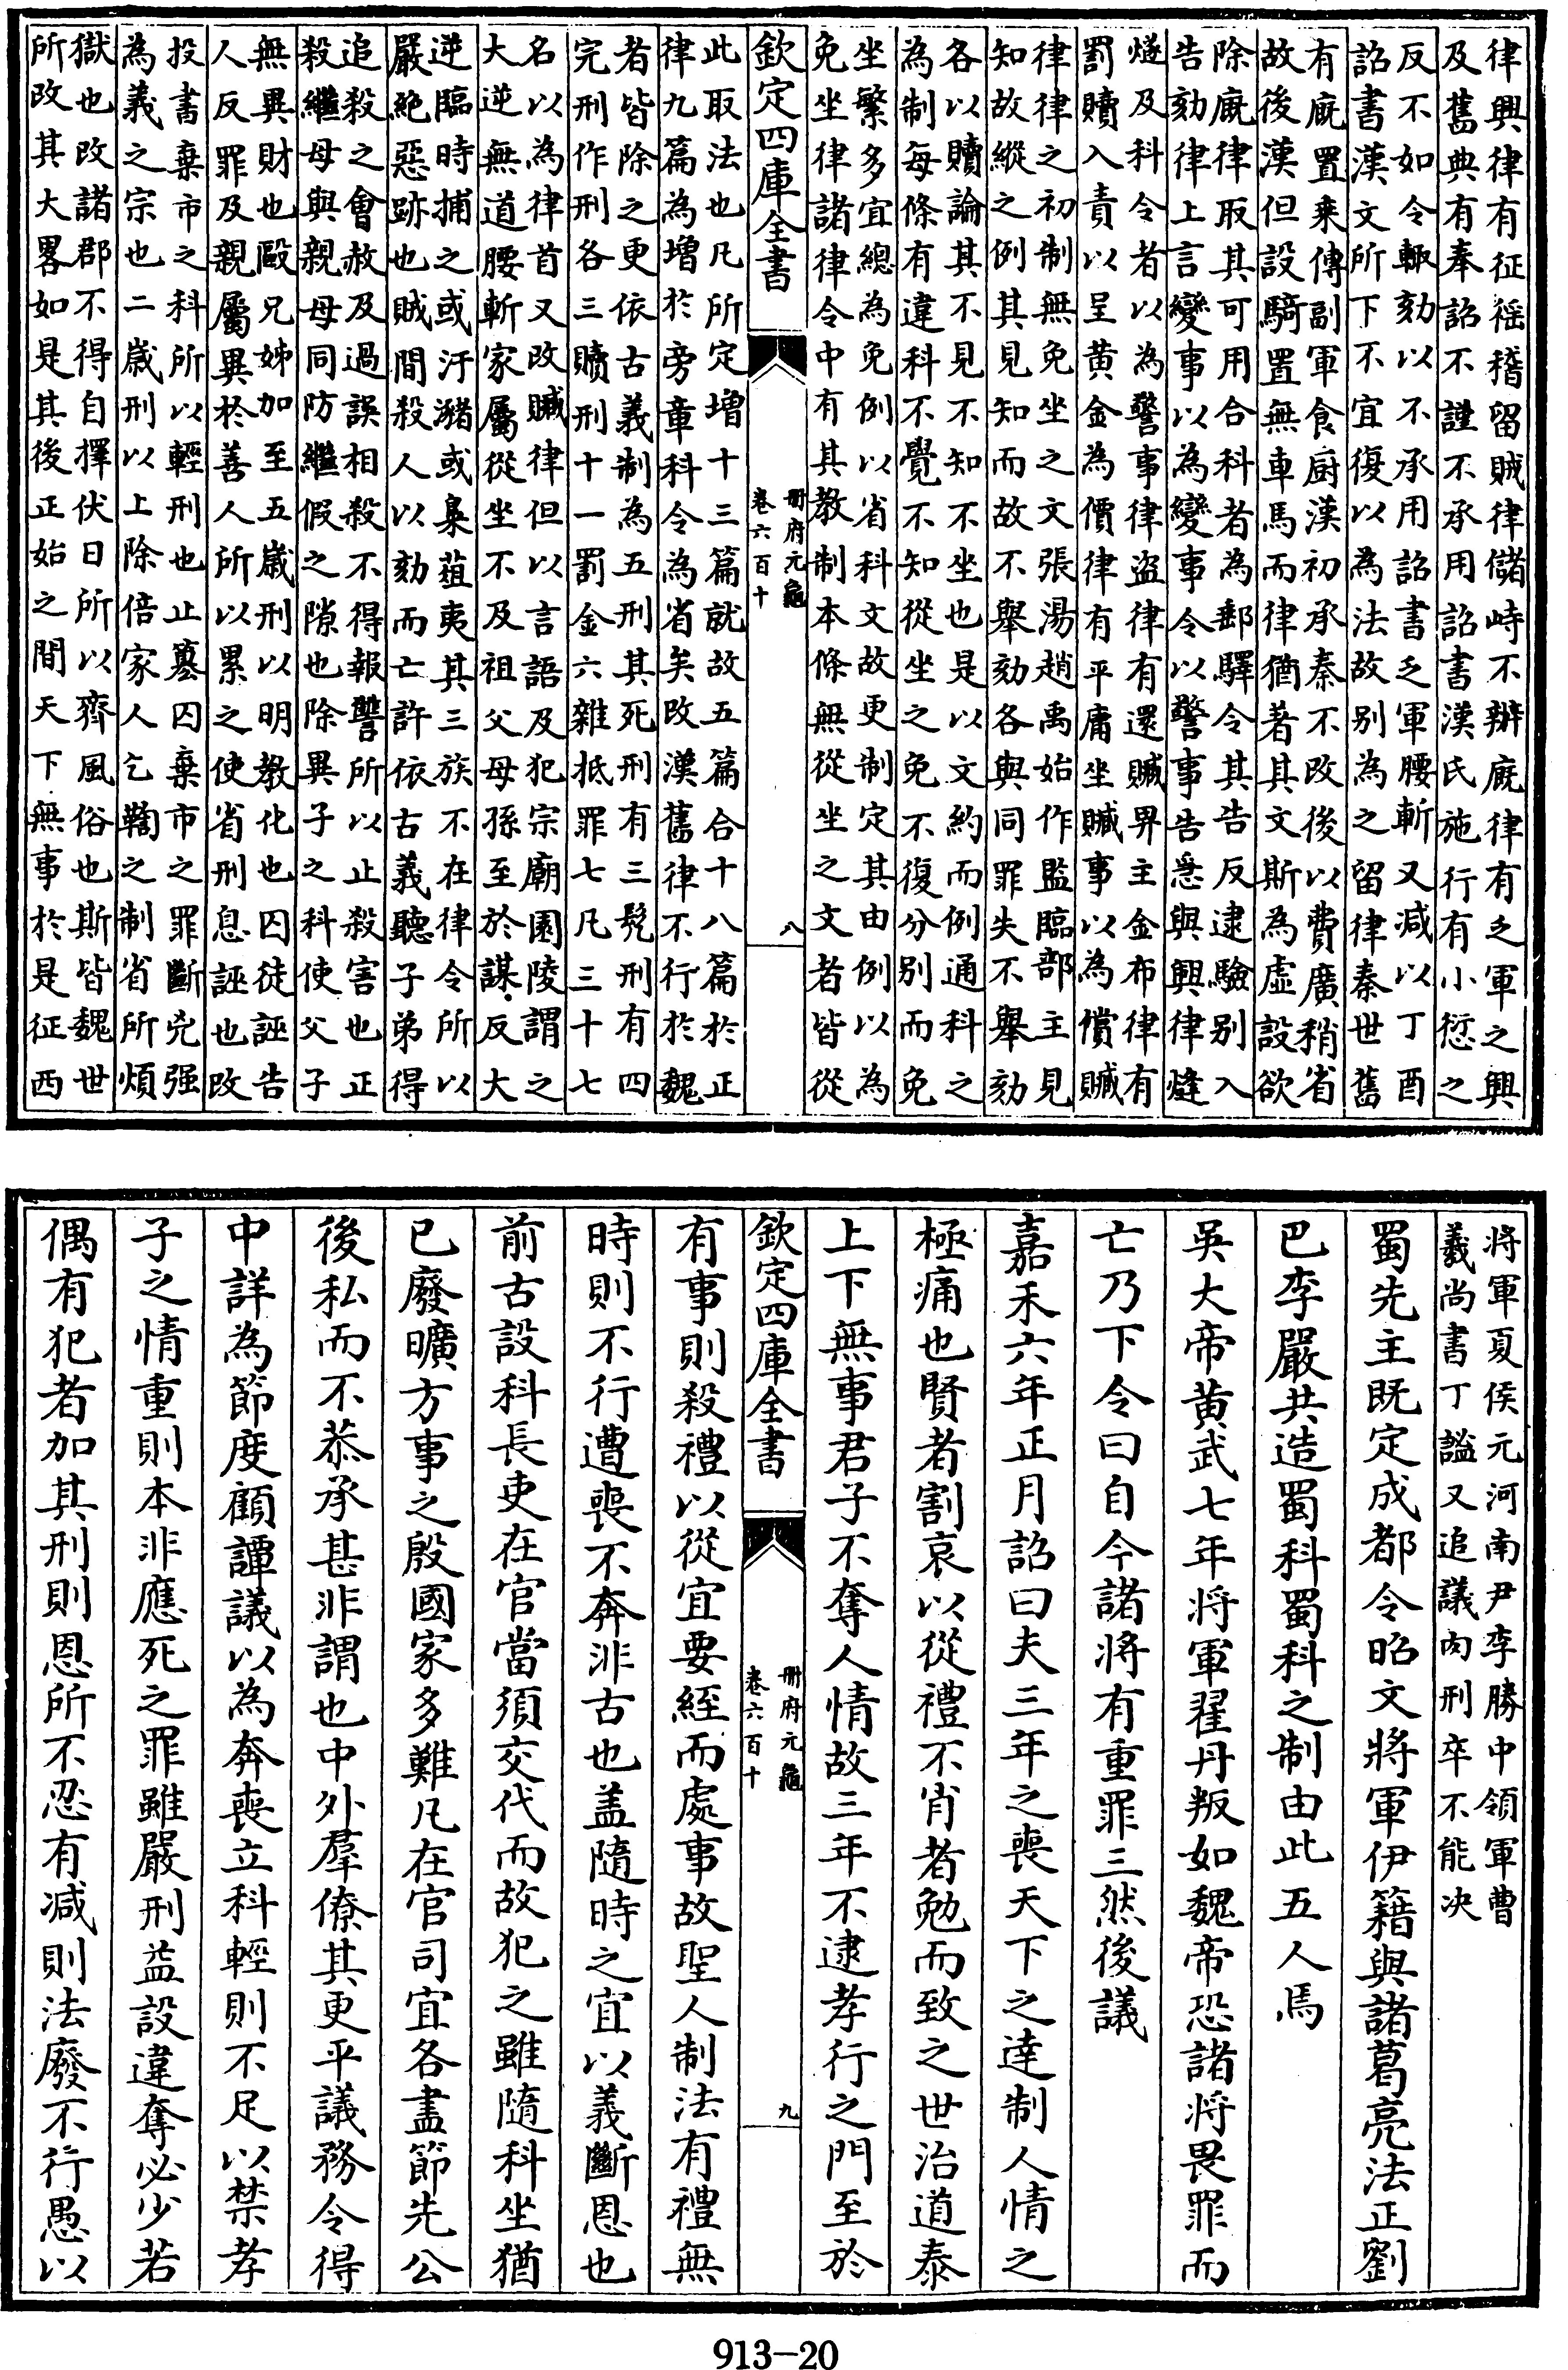 律興律有征徭稽留賊律儲峙不辦廐律有乏軍之興
及舊典有奉詔不謹不承用詔書漢氏施行有小愆之
反不如令輙劾以不承用詔書乏軍腰斬又减以丁酉
詔書漢文所下不宜復以為法故别為之留律秦世舊
有廐置乗傳副軍食厨漢初承秦不改後以費廣稍省
故後漢但設騎置無車馬而律猶著其文斯為虚設欲
除廐律取其可用合科者為郵驛令其告反逮驗别入
告劾律上言變事以為變事令以警事告急與興律烽
燧及科令者以為警事律盗律有還贓畀主金布律有
罰贖入責以呈黄金為價律有平庸坐贓事以為償贓
律律之初制無免坐之文張湯趙禹始作監臨部主見
知故縱之例其見知而故不舉劾各與同罪失不舉劾
各以贖論其不見不知不坐也是以文約而例通科之
為制每條有違科不覺不知從坐之免不復分别而免
坐繁多宜總為免例以省科文故更制定其由例以為
免坐律諸律令中有其教制本條無從坐之文者皆從
欽定四庫全書
册府元龜
卷六百十
八
此取法也凡所定增十三篇就故五篇合十八篇於正
律九篇為増於旁章科令為省矣改漢舊律不行於魏
者皆除之更依古義制為五刑其死刑有三髡刑有四
完刑作刑各三贖刑十一罰金六雜抵罪七凡三十七
名以為律首又改賊律但以言語及犯宗廟園陵謂之
大逆無道腰斬家屬從坐不及祖父母孫至於謀反大
逆臨時捕之或汙瀦或梟葅夷其三族不在律令所以
嚴絶惡跡也賊間殺人以劾而亡許依古義聽子弟得
追殺之會赦及過誤相殺不得報讐所以止殺害也正
殺繼母與親母同防繼假之隙也除異子之科使父子
無異財也毆兄姊加至五嵗刑以明教化也囚徒誣告
人反罪及親屬異於善人所以累之使省刑息誣也改
投書棄市之科所以輕刑也止簒囚棄市之罪斷兇强
為義之宗也二嵗刑以上除倍家人乞鞫之制省所煩
獄也改諸郡不得自擇伏日所以齊風俗也斯皆魏世
所改其大畧如是其後正始之間天下無事於是征西
將軍夏侯元河南尹李勝中領軍曹
羲尚書丁謐又追議肉刑卒不能决
蜀先主既定成都令昭文將軍伊籍與諸葛亮法正劉
巴李嚴共造蜀科蜀科之制由此五人焉
吳大帝黄武七年将軍翟丹叛如魏帝恐諸将畏罪而
亡乃下令曰自今諸將有重罪三然後議
嘉禾六年正月詔曰夫三年之喪天下之逹制人情之
極痛也賢者割哀以從禮不肖者勉而致之世治道泰
上下無事君子不奪人情故三年不逮孝行之門至於
欽定四庫全書
册府元龜
卷六百十
九
有事則殺禮以從宜要絰而處事故聖人制法有禮無
時則不行遭喪不奔非古也盖隨時之宜以義斷恩也
前古設科長吏在官當須交代而故犯之雖隨科坐猶
已廢曠方事之殷國家多難凡在官司宜各盡節先公
後私而不恭承甚非謂也中外羣僚其更平議務令得
中詳為節度顧譚議以為奔喪立科輕則不足以禁孝
子之情重則本非應死之罪雖嚴刑益設違奪必少若
偶有犯者加其刑則恩所不忍有减則法廢不行愚以
913-20